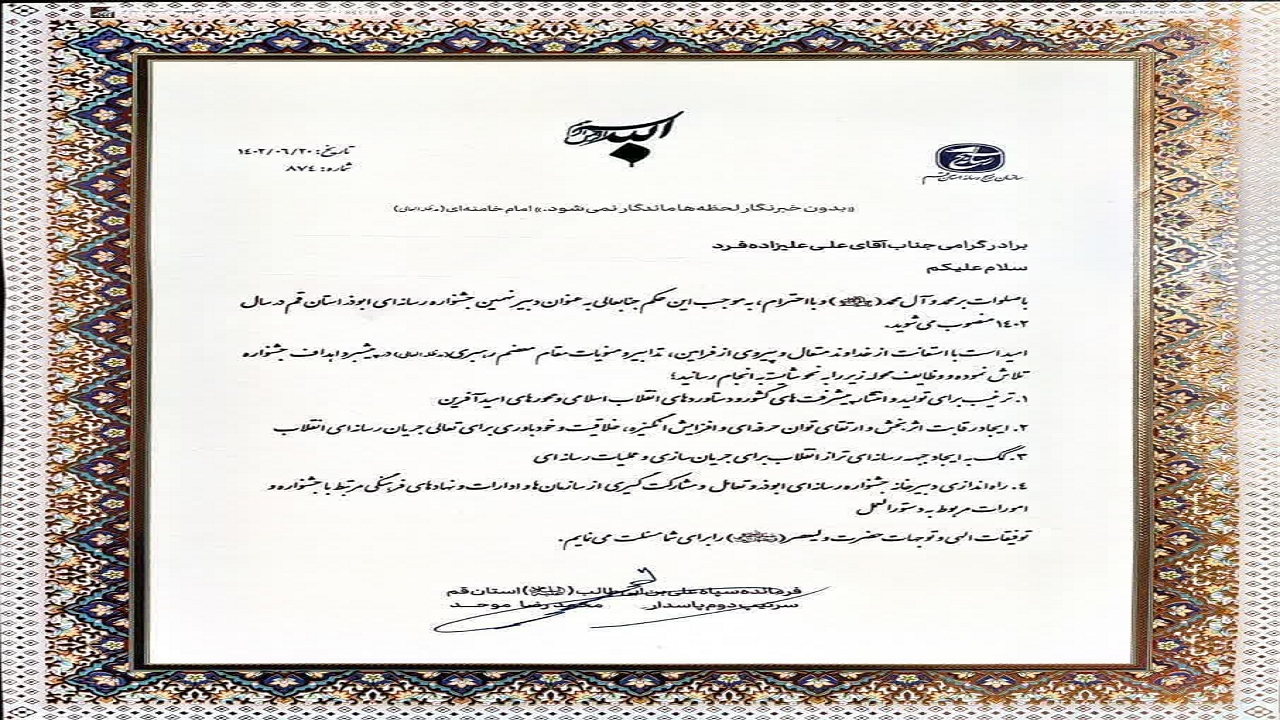 تاریخ: ۱۴۰۲/۰۶/۲۰
شماره: ۸۷٤
رسانه
سازمان بسیج رسانه استان قم
«بدون خبرنگار لحظه‌ها ماندگار نمی‌شود.» امام خامنه‌ای (مدظله العالی)
برادر گرامی جناب آقای علی علیزاده‌فرد
سلام علیکم
با صلوات بر محمد و آل محمد() و با احترام، به موجب این حکم جنابعالی به عنوان دبیر نهمین جشنواره رسانه‌ای ابوذر استان قم در سال
۱۴۰۲ منصوب می‌شوید.
امید است با استعانت از خداوند متعال و پیروی از فرامین، تدابیر و منویات مقام معظم رهبری(مدظله العالی) در پیشبرد اهداف جشنواره
تلاش نموده و وظایف محوله زیر را به نحو شایسته به انجام رسانید؛
۱. ترغیب برای تولید و انتشار پیشرفت‌های کشور و دستاوردهای انقلاب اسلامی و محورهای امیدآفرین
۲. ایجاد رقابت اثربخش و ارتقای توان حرفه‌ای و افزایش انگیزه، خلاقیت و خودباوری برای تعالی جریان رسانه‌ای انقلاب
۳. کمک به ایجاد جبهه رسانه‌ای تراز انقلاب برای جریان‌سازی و عملیات رسانه‌ای
٤. راه‌اندازی دبیرخانه جشنواره رسانه‌ای ابوذر و تعامل و مشارکت‌گیری از سازمان‌ها و ادارات و نهادهای فرهنگی مرتبط با جشنواره و
امورات مربوط به دستورالعمل
توفیقات الهی و توجهات حضرت ولیعصر() را برای شما مسئلت می‌نمایم.
فرمانده سپاه علی بن ابی‌طالب() استان قم
سرتیپ دوم پاسدار محمدرضا موحد